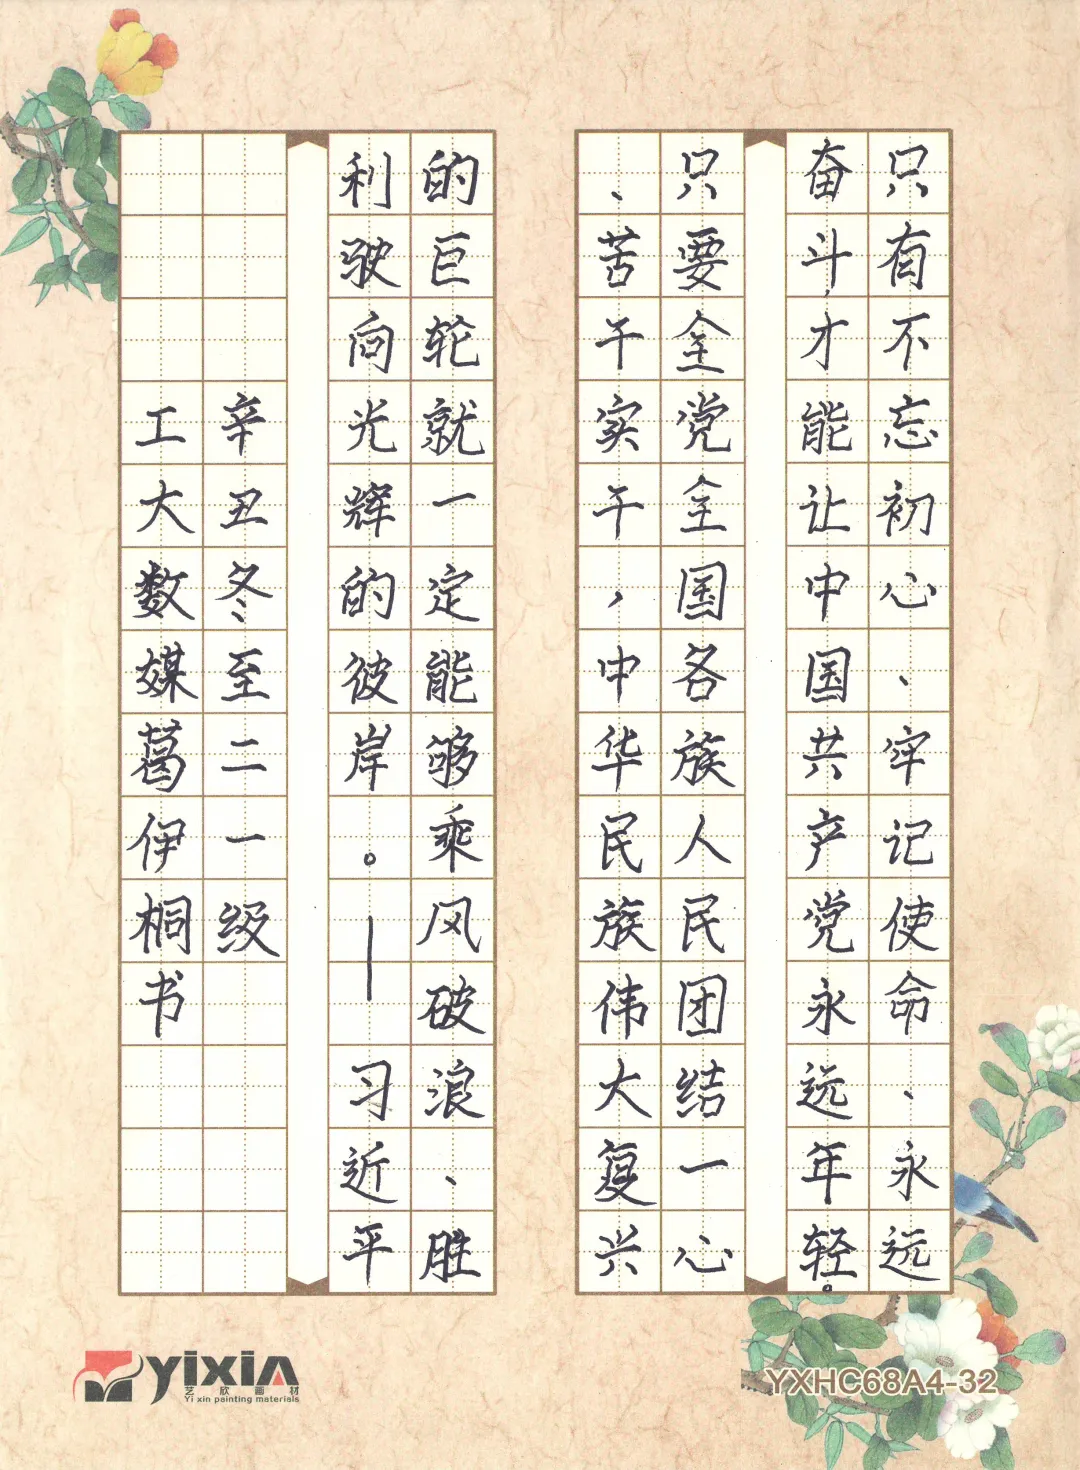 只有不忘初心、牢记使命、永远
奋斗,才能让中国共产党永远年轻。
只要全党全国各族人民团结一心
、苦干实干,中华民族伟大复兴
的巨轮就一定能够乘风破浪、胜
利驶向光辉的彼岸。—习近平
辛丑冬至二一级
工大数媒葛伊桐书
yixin
艺欣画材
Yi xin painting materials
YXHC68A4-32